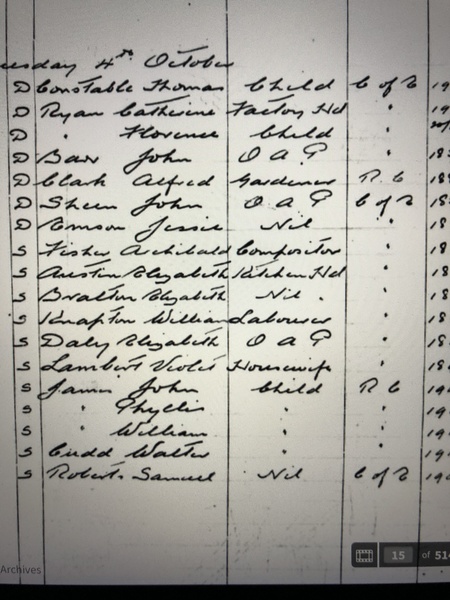 uesday 4th October
D Constable Thomas Child C of E 19
D Ryan Catherine Factory Hd " 19
D " Florence Child "
D Barr John O A P " 18
D Clark Alfred Gardener R. C 18
D Sheen John O A P C of E 18
D Emson Jessie Nil " 18
S Fisher Archibald Compositor " 18
S Austin Elizabeth Kitchen Hd " 18
S Bratton Elizabeth Nil . " 18
S Knapton William Labourer " 18
S Daly Elizabeth O A P " 18
S Lambert Violet Housewife " 19
S James John Child R C 19
S " Phyllis " " 19
S " William " " 19
S Cudd Walter " " 19
S Roberts Samuel Nil C of E 19
15 of 51
Archives